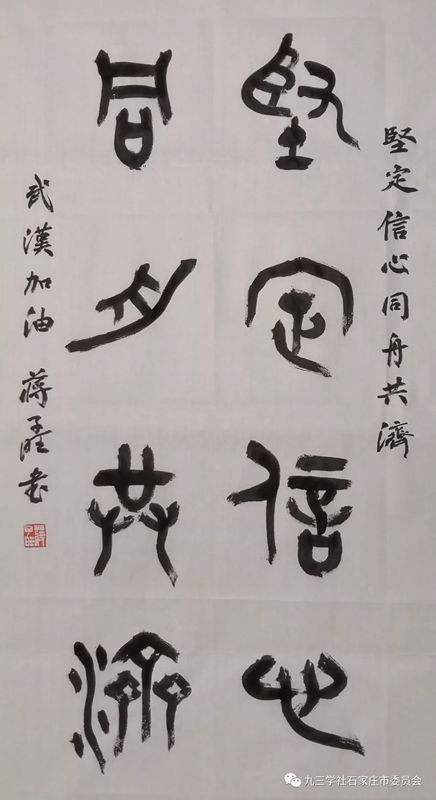 堅定信心同舟共濟
堅定信心
同舟共濟
武漢加油
九三学社石家庄市委员会